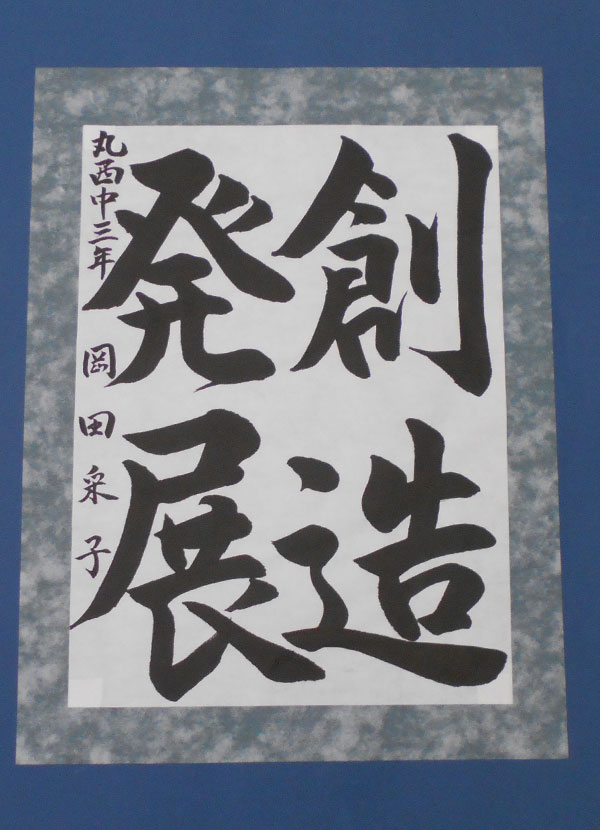 創造
発展
丸西中三年 岡田采子